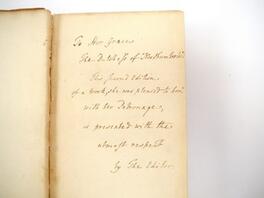 To Her Grace
The Dutchess of Northumberld.
This second Edition
of a work, she was pleased to honr.
with her Patronage,
is presented with the
utmost respect
by The Editor.